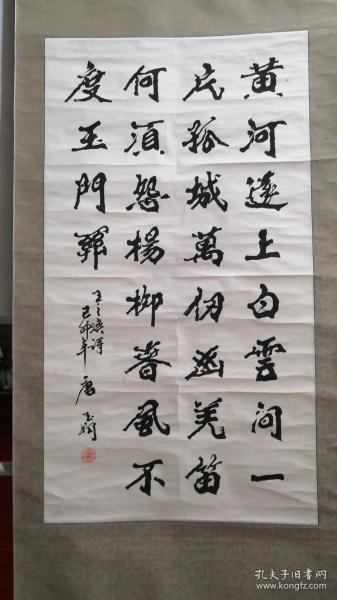 黄河遠上白雲间一
片孤城萬仞山羌笛
何須怨楊柳春風不
度玉門關
王之渙詩
己卯年 唐玉润
孔夫子旧书网
www.kongfz.com